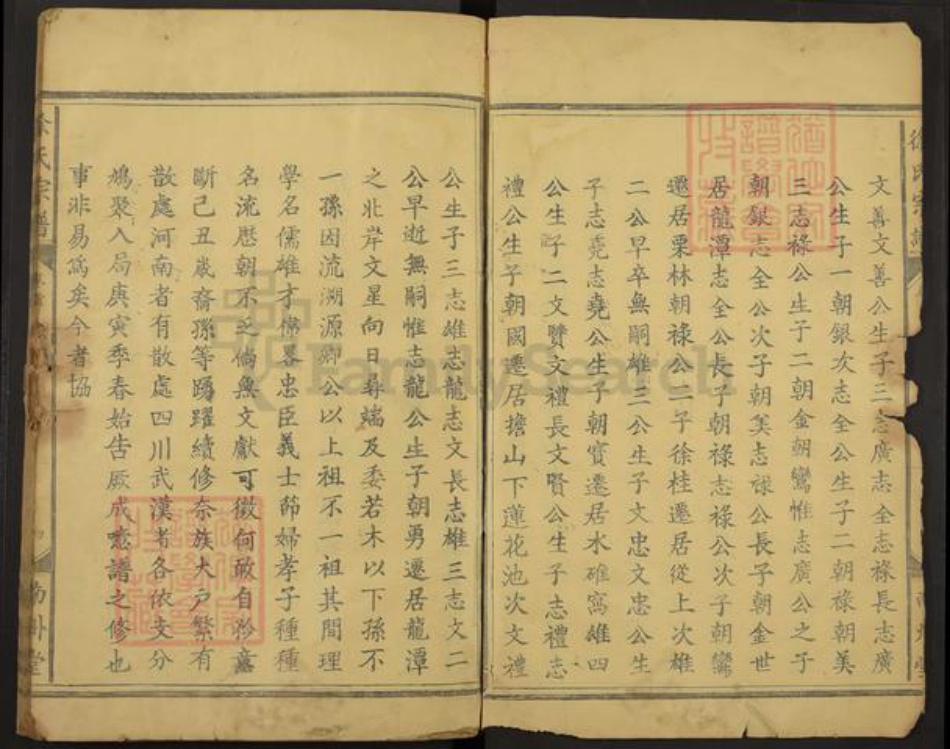 文善文善公生子三志廣志全志祿長志廣
公生子一朝銀次志全公生子二朝祿朝美
三志祿公生子二朝金朝鸞惟志廣公之子
朝銀志全公次子朝美志祿公長子朝金世
居龍潭志全公長子朝祿志祿公次子朝鸞
遷居栗林朝祿公二子徐桂遷居從上次雄
二公早卒無嗣雄三公生子文忠文忠公生
子志堯志堯公生子朝賓遷居水碓窩雄四
公生子二文贒文禮長文賢公生子志禮志
禮公生子朝國遷居擔山下蓮花池次文禮
公生子三志雄志龍志文長志雄三志文二
公早逝無嗣惟志龍公生子朝勇遷居龍潭
之北岸文星向日尋端及委若木以下孫不
一孫因流溯源卿公以上祖不一祖其間理
學名儒雄才偉畧忠臣義士節婦孝子種種
名流歷朝不乏倘無文獻可徵何敢自矜意
斷己丑歲裔孫等踴躍續修奈族大户繁有
散處河南者有散處四川武漢者各依支分
鳩聚入局庚寅季春始告厥成噫譜之修也
事非易爲矣今者協
徐氏宗譜
南州堂
FamilySearch